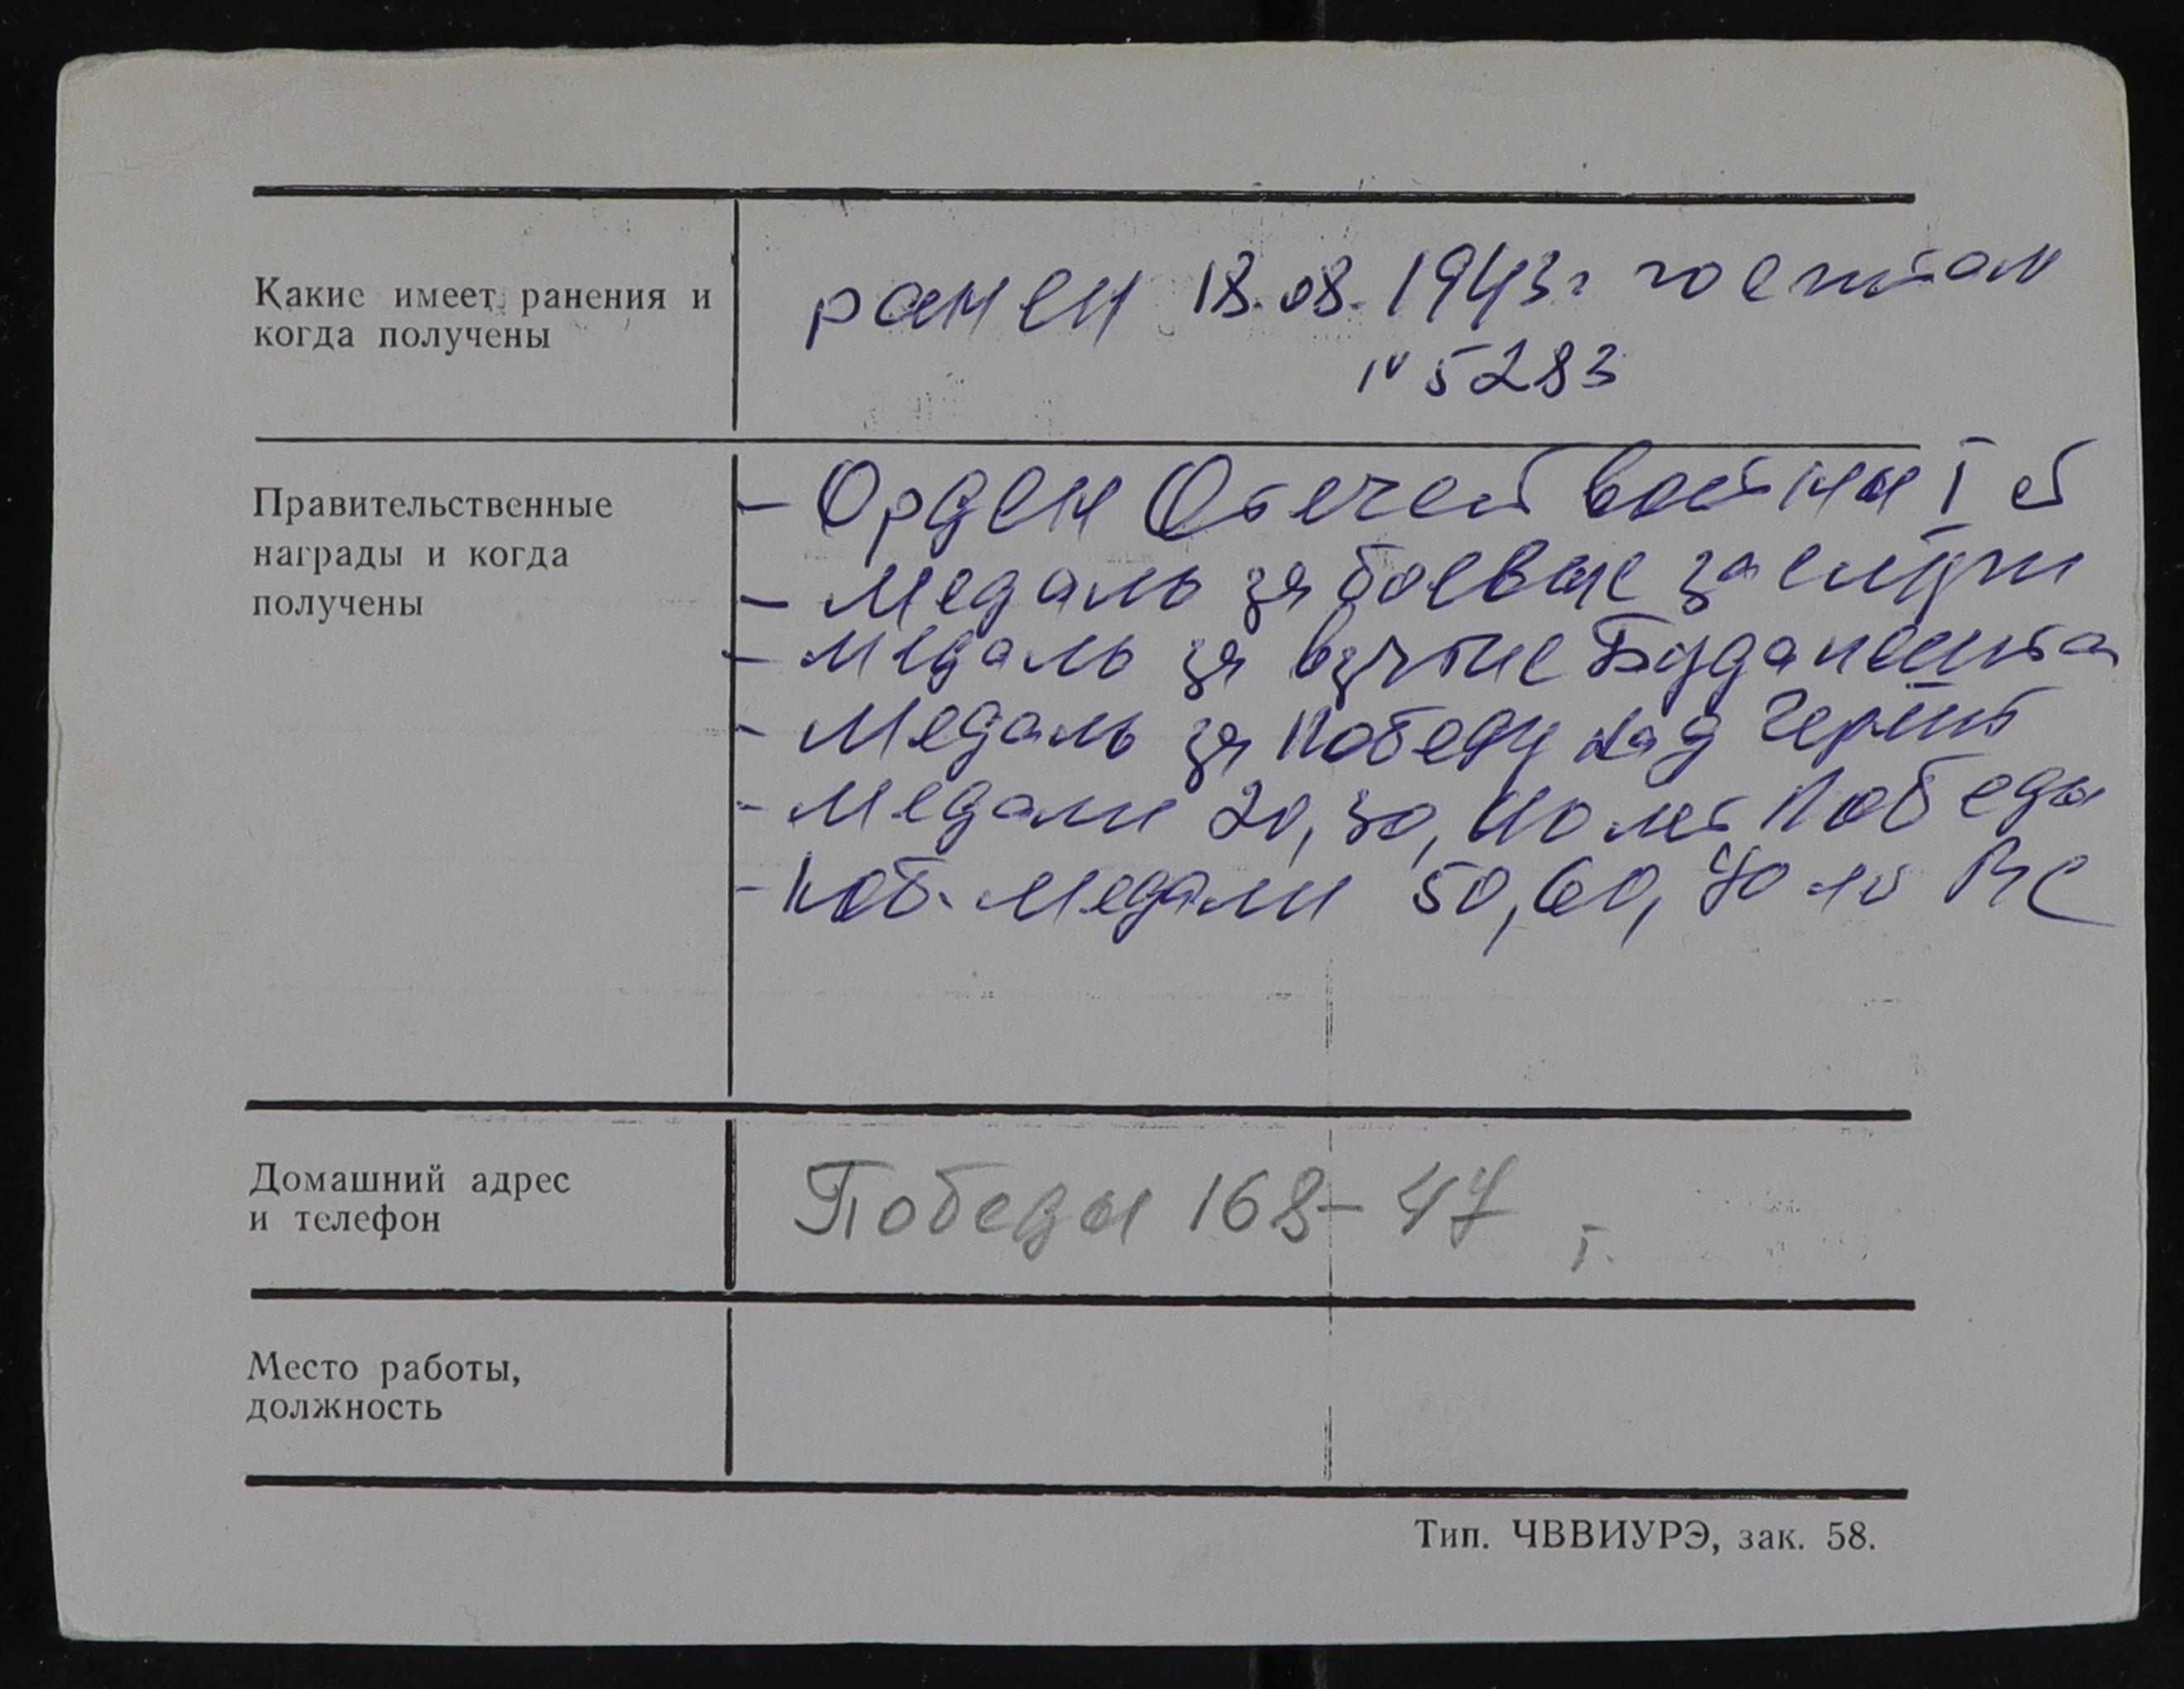 Какие имеет ранения и
когда получены
ранен 18.08.1943г госпитал
№ 5283
Правительственные
награды и когда
получены
- Орден Отечест войны I ст
- Медаль за боевые заслуги
- Медаль за взятие Будапешта
- Медаль за Победу над Герм
- Медали 20, 30, 40 лет Победы
- Юб. медали 50, 60, 70 ВС
Домашний адрес
и телефон
Победы 168-47 т.
Место работы,
должность
Тип. ЧВВИУРЭ, зак. 58.